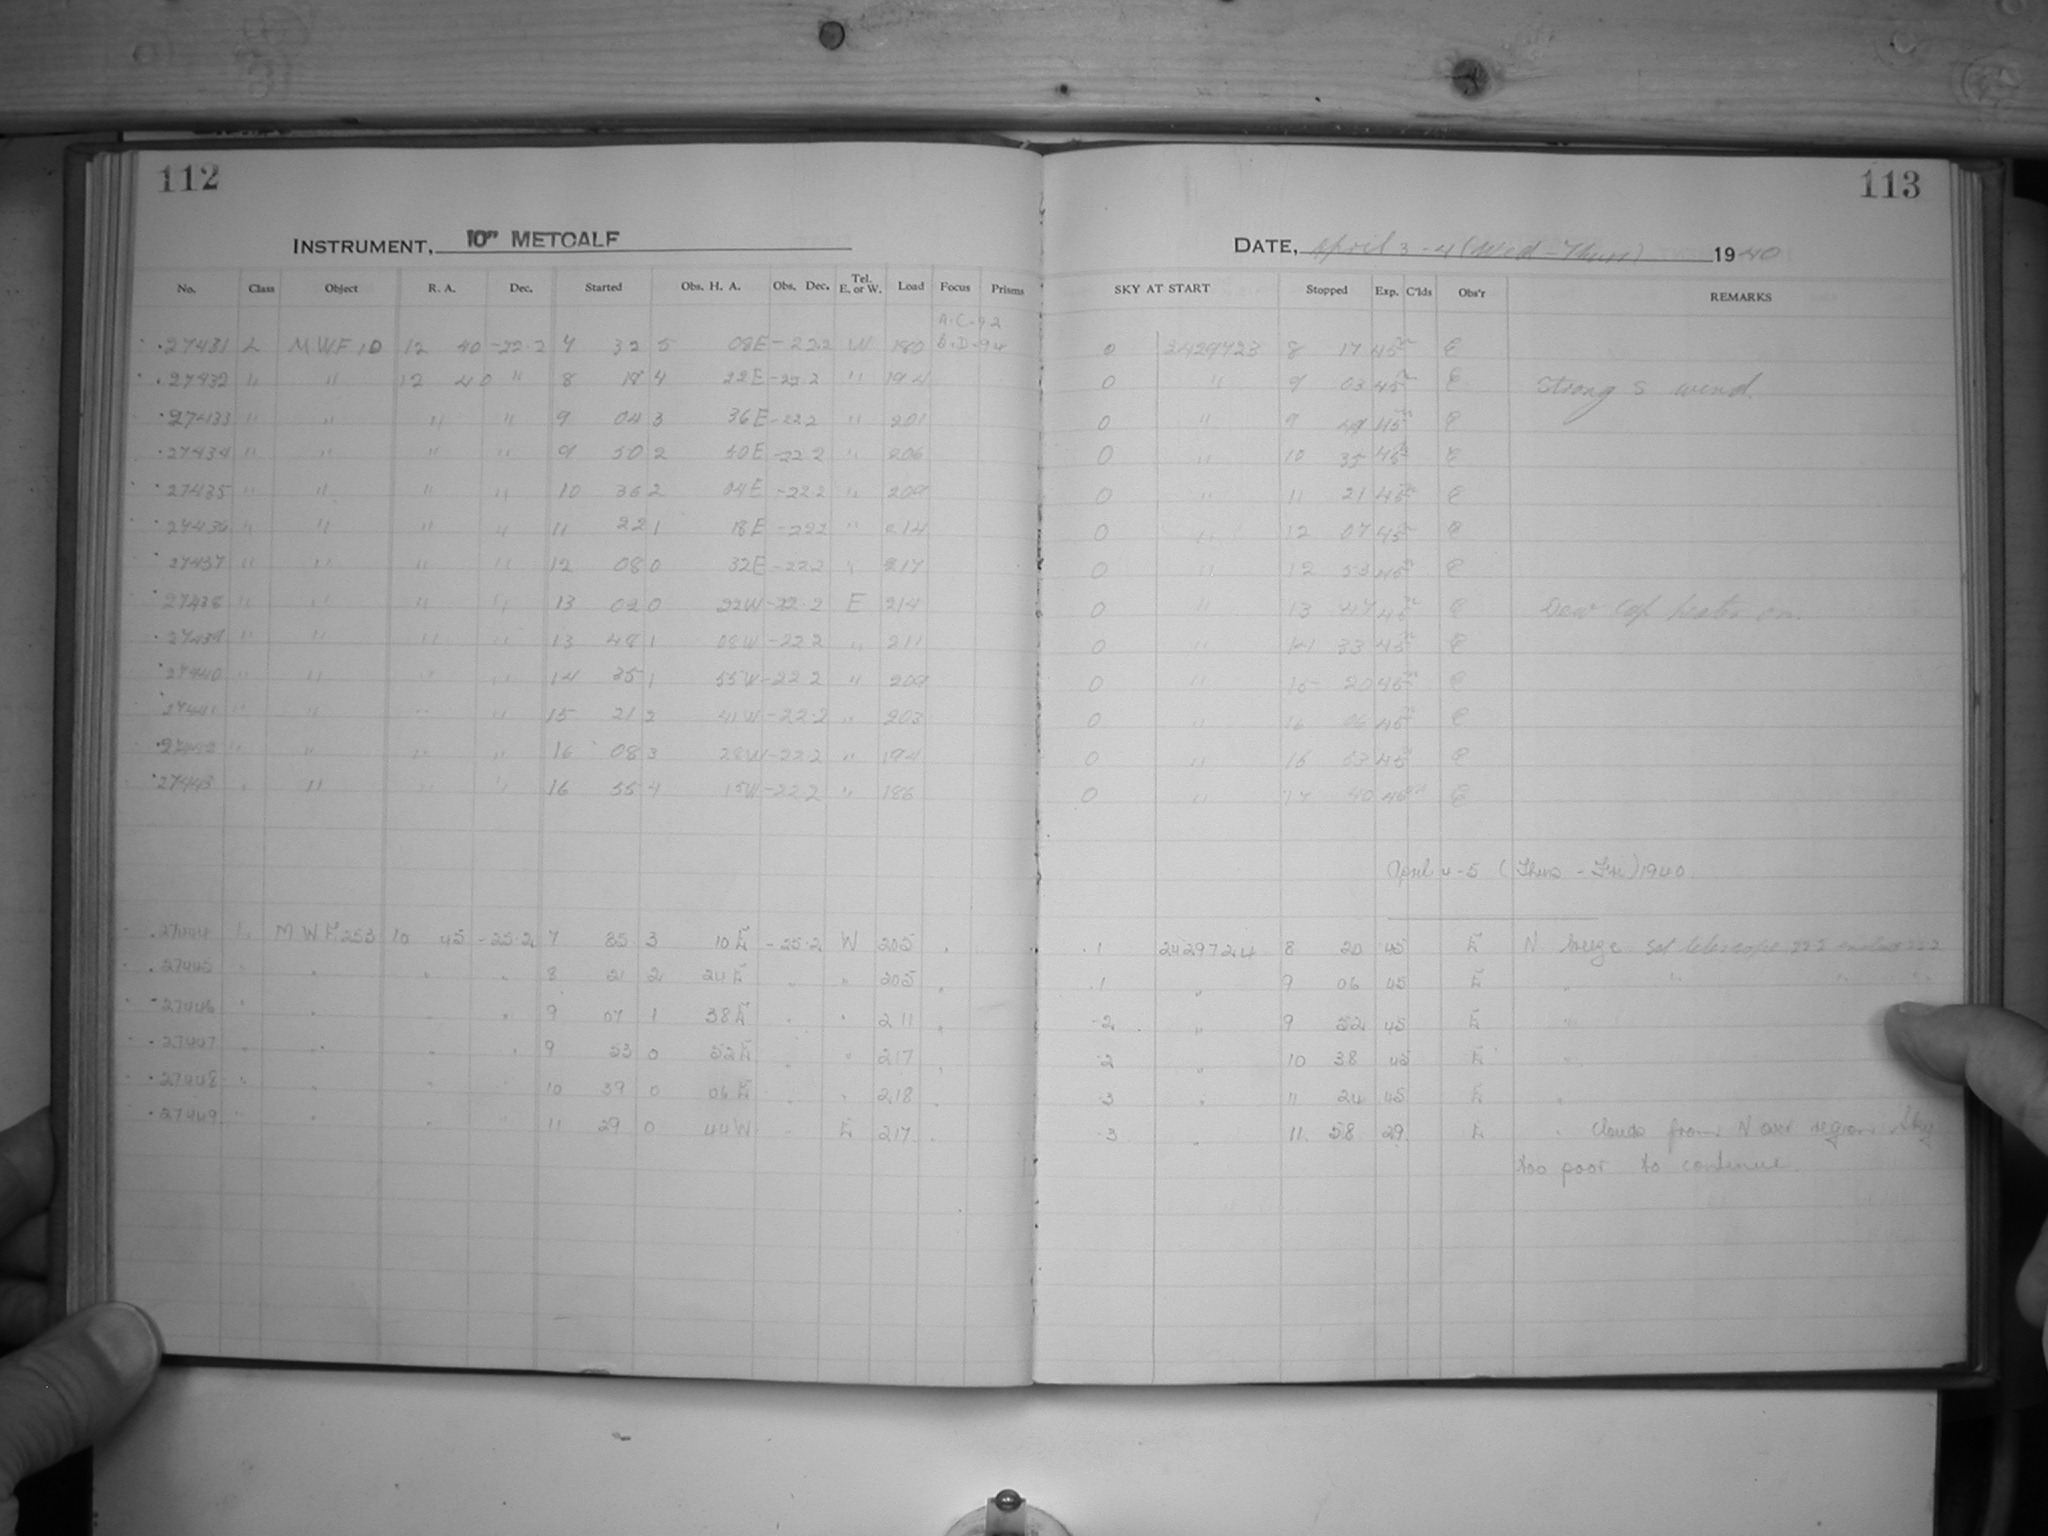 112
INSTRUMENT, 10" METCALF
No. Class Object R. A. Dec. Started Obs. H. A. Obs. Dec. Tel. E. or W. Load Focus Prisms
A.C-92
27431 L MWF 10 12 40 -22.2 7 32 5 08E -22.2 W 180 B.D-94
27432 " " 12 40 " 8 18 4 22E -22.2 " 194
27433 " " " " 9 04 3 36E -22.2 " 201
27434 " " " " 9 50 2 50E -22.2 " 206
27435 " " " " 10 36 2 04E -22.2 " 209
27436 " " " " 11 22 1 18E -22.2 " 214
27437 " " " " 12 08 0 32E -22.2 " 217
27438 " " " " 13 02 0 22W -22.2 E 214
27439 " " " " 13 48 1 08W -22.2 " 211
27440 " " " " 14 35 1 55W -22.2 " 209
27441 " " " " 15 21 2 41W -22.2 " 203
27442 " " " " 16 08 3 28W -22.2 " 194
27443 " " " " 16 55 4 15W -22.2 " 186
27444 L MWF 253 10 45 -25.2 7 35 3 10E -25.2 W 205
27445 " " " " 8 21 2 24E " " 205
27446 " " " " 9 07 1 38E " " 211
27447 " " " " 9 53 0 52E " " 217
27448 " " " " 10 39 0 06E " " 218
27449 " " " " 11 29 0 44W " E 217
113
DATE, April 3-4 (Wed-Thurs) 1940
SKY AT START Stopped Exp. C'lds Obs'r REMARKS
0 2429723 8 17 45m E
0 " 9 03 45m E Strong S wind.
0 " 9 49 45m E
0 " 10 35 45m E
0 " 11 21 45m E
0 " 12 07 45m E
0 " 12 53 45m E
0 " 13 47 45m E Dew Cap heater on.
0 " 14 33 45m E
0 " 15 20 45m E
0 " 16 06 45m E
0 " 16 53 45m E
0 " 17 40 45m E
April 4-5 (Thurs - Fri) 1940.
.1 2429724 8 20 45 E N breeze. Set telescope
.1 " 9 06 45 E " " " "
.2 " 9 52 45 E "
.2 " 10 38 45 E "
.3 " 11 24 45 E "
.3 " 11. 58 29. E " Clouds from N over region. Sky
too poor to continue.